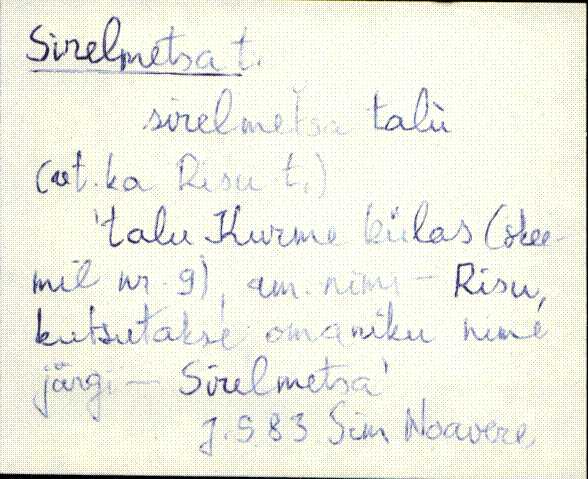 Sirelmetsa t.
sirelmetsa talù
(vt. ka Risu t.)
'talu Kurme külas (skee-
mil nr. 9), am. nimi – Risu,
kutsutakse omaniku nime
järgi – Sirelmetsa'
J. S 83 Sim Noavere